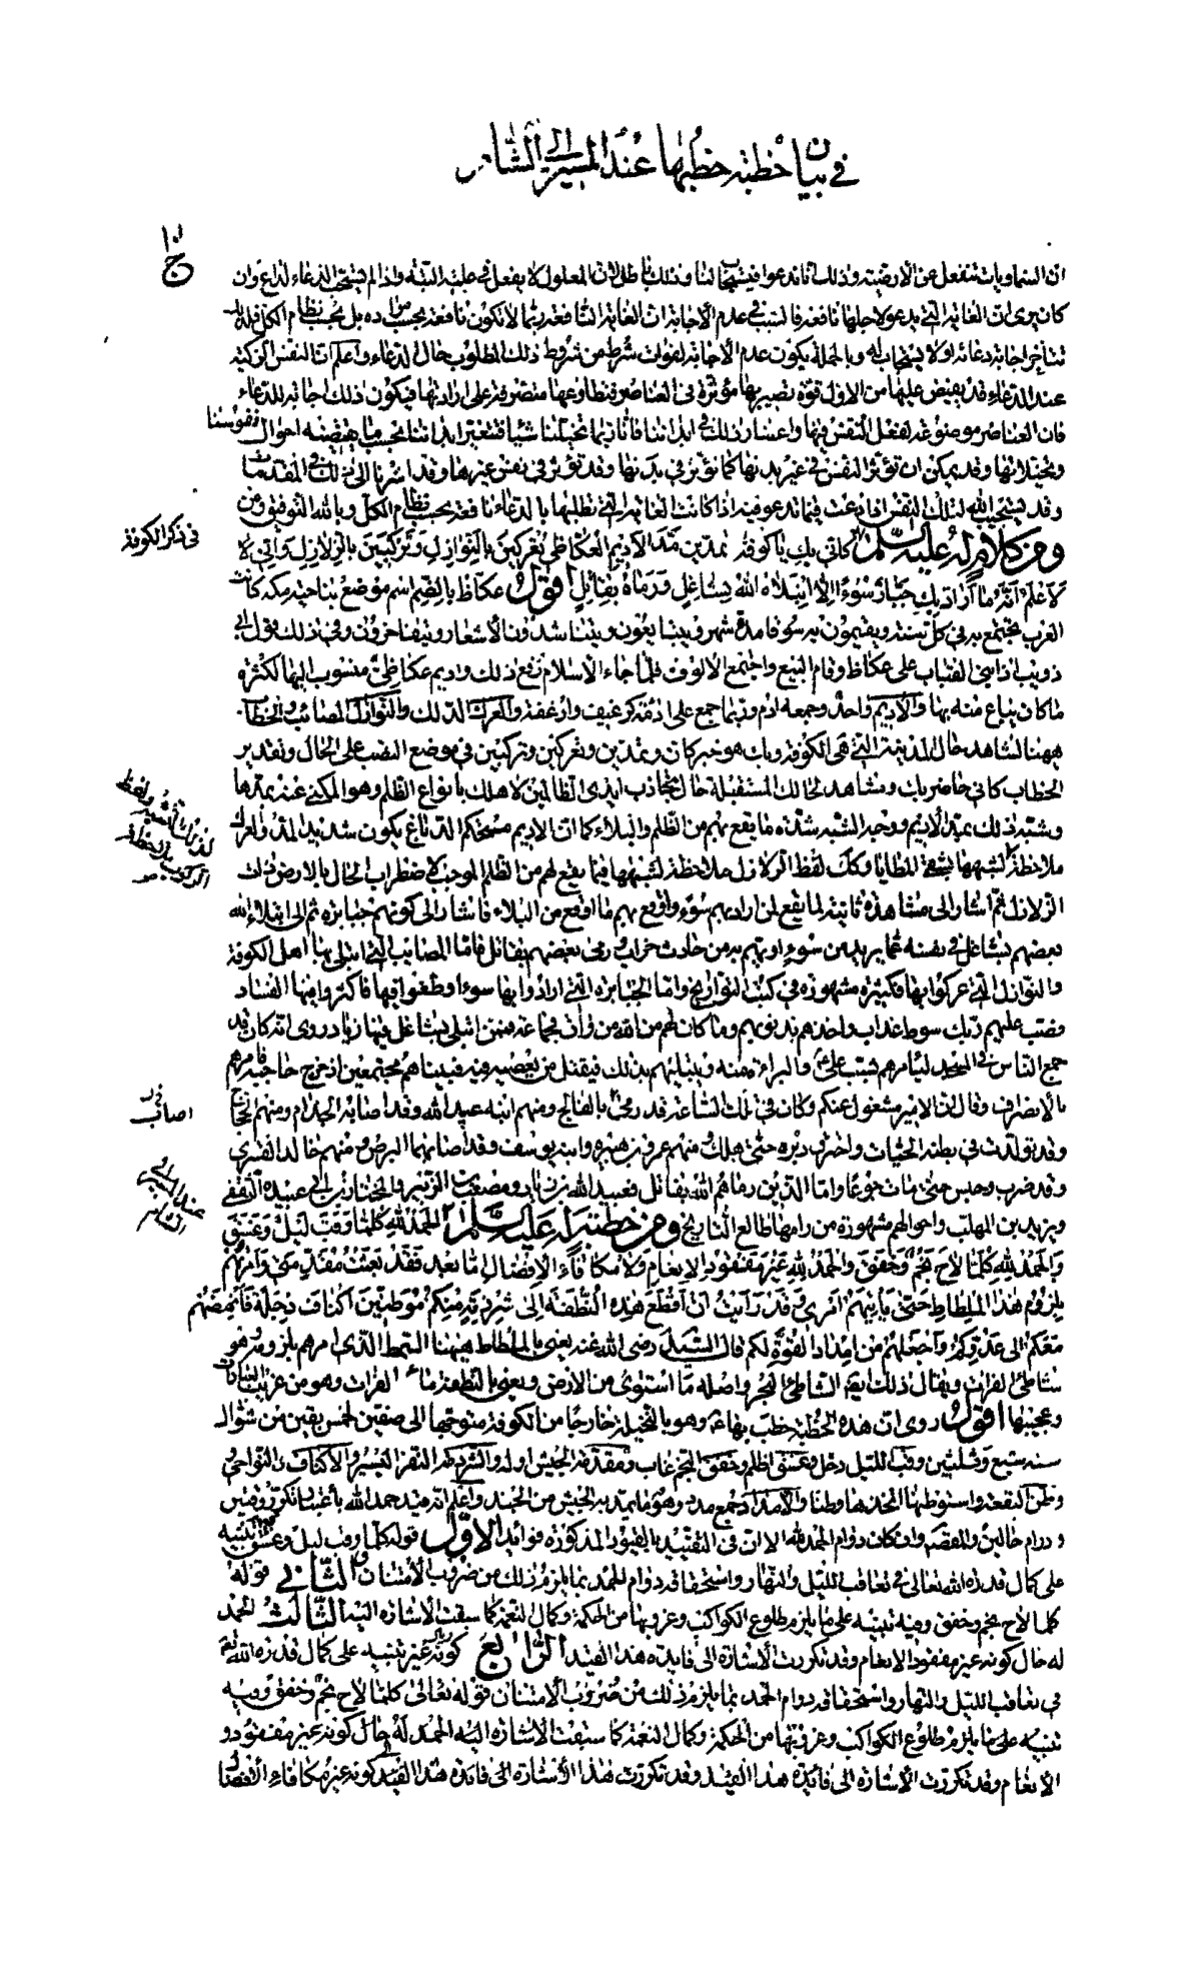 في بيان خطبة خطبها عند المسير الى الشام
ج ١٠
ان السماويات تنفعل عن الارضية وذلك انا ندعوا فيستجاب لنا وذلك باطل لان المعلول لا يفعل في علته البتة واذا لم يستجب الدعاء لداع وان
كان يرى ان الغاية التي يدعو لاجلها نافعة فالسبب في عدم الاجابة ان الغاية النافعة ربما لا تكون نافعة بحسب مراده بل بحسب نظام الكل فلذلك
تتاخر اجابة دعائه اولا يستجاب له وبالجملة يكون عدم الاجابة لفوات شرط من شروط ذلك المطلوب حال الدعاء واعلم ان النفس الزكية
عند الدعاء قد يفيض عليها من الاول قوة تصير بها مؤثرة في العناصر فتطاوعها متصرفة على ارادتها فيكون ذلك اجابة للدعاء
فان العناصر موضوعة لفعل النفس فيها واعتبار ذلك في ابداننا فانا ربما تخيلنا شيئا فتتغير ابداننا بحسب ما يقتضيه احوال نفوسنا
وتخيلاتها وقد يمكن ان تؤثر النفس في غير بدنها كما تؤثر في بدنها وقد تؤثر في نفس غيرها وقد اشرنا الى ذلك في المقدمات
وقد يستجيب الله لتلك النفس اذا دعت فيما تدعو فيه اذا كانت الغاية التي تطلبها بالدعاء نافعة بحسب نظام الكل وبالله التوفيق ومن
في ذكر الكوفة
ومن كلام له عليه السلم كاني بك يا كوفة تمدين مد الاديم العكاظي تعركين بالنوازل وتركبين بالزلازل واني لا
لاعلم انه ما اراد بك جبار سوءا الا ابتلاه الله بشاغل ورماه بقاتل اقول عكاظ بالضم اسم موضع بناحية مكة كانت
العرب تجتمع به في كل سنة ويقيمون به سوقا مدة شهر ويتبايعون ويتناشدون الاشعار ويتفاخرون وفي ذلك يقول ابي
ذويب اذا بني القباب على عكاظ وقام البيع واجتمع الالوف فلما جاء الاسلام رفع ذلك واديم عكاظي منسوب اليها لكثرة
ما كان يباع منه بها والاديم واحد وجمعه ادم وربما جمع على ادمة كرغيف وارغفة والعرك الدلك والنوازل المصائب والخطاب
ههنا لشاهد حال المدينة التي هي الكوفة وبك هو خبر كان وتمدين وتعركين وتركبين في موضع النصب على الحال وتقدير
الخطاب كاني حاضر بك ومشاهد لحالك المستقبلة حال تجاذب ايدي الظالمين لاهلك بانواع الظلم وهو المكنى عنه بمدها
وشبه ذلك بمد الاديم ووجه الشبه شدة ما يقع بهم من الظلم والبلاء كما ان الاديم مستحكم الدباغ يكون شديد المد والعرك
ملاحظة لشبهها بشقة المطايا وكك لفظ الزلازل ملاحظة لشبهها فيما يقع لهم من الظلم الموجب لاضطراب الحال بالارض ذات
الزلازل ثم اشار الى مشاهدة ثانية لما يقع لمن اراد بهم سوء واوقع بهم ما اوقع من البلاء فاشار الى كونهم جبابرة ثم الى ابتلاء الله
بعضهم بشاغل في نفسه عما يريد من سوء او بهم من حادث خراب ورمى بعضهم بقاتل فاما المصائب التي ابتلى بها اهل الكوفة
والنوازل التي عركوا بها فكثيرة مشهورة في كتب التواريخ واما الجبابرة التي ارادوا بها سوءا وطغوا فيها فاكثروا فيها الفساد
فصب عليهم ربك سوط عذاب واخذهم بذنوبهم وما كان لهم من الله من واق فجماعة فممن ابتلي بشاغل فيها زياد روى انه كان قد
جمع الناس في المسجد ليامرهم بسب علي ع والبراءة منه ويبتليهم بذلك فيقتل من يعصيه فيه فبيناهم مجتمعين اذ خرج حاجبه فامرهم
بالانصراف وقال ان الامير مشغول عنكم وكان في تلك الساعة قد رمي بالفالج ومنهم ابنه عبيد الله وقد اصابه الجذام ومنهم الحجاج
وقد تولدت في بطنه الحيات واحترق دبره حتى هلك ومنهم عمر بن هبيرة وابنه يوسف وقد اصابهما البرص ومنهم خالد القسري
وقد ضرب وحبس حتى مات جوعا واما الذين رماهم الله بقاتل فعبيد الله بن زياد ومصعب بن الزبير والمختار بن ابي عبيدة الثقفي
عند المسير الى الشام
ويزيد بن المهلب واحوالهم مشهورة من رامها طالع التاريخ ومن خطبة له عليه السلم الحمد لله كلما وقب ليل وغسق
والحمد لله كلما لاح نجم وخفق والحمد لله غير مفقود الانعام ولا مكافاء الافضال اما بعد فقد بعثت مقدمتي وامرتهم
بلزوم هذا الملطاط حتى ياتيهم امري وقد رايت ان اقطع هذه النطفة الى شرذمة منكم موطنين اكناف دجلة فانهضهم
معكم الى عدوكم واجعلهم من امداد القوة لكم قال السيد رضي الله عنه يعني بالملطاط ههنا السمط الذي امرهم بلزومه وهو
شاطئ الفرات ويقال ذلك ايضا لشاطئ البحر واصله ما استوى من الارض ويعني بالنطفة ماء الفرات وهو من غريب العبارات
وعجيبها اقول روى ان هذه الخطبة خطب بها ع وهو بالنخيلة خارجا من الكوفة متوجها الى صفين لخمس بقين من شوال
سنة سبع وثلثين وقب الليل دخل وغسق اظلم وخفق النجم غاب ومقدمة الجيش اوله والشرذمة النفر اليسير والاكناف النواحي
وطن البقعة واستوطنها اتخذها وطنا والامداد جمع مدد وهو ما يمد به الجيش من الجند واعلم انه قيد حمد الله باعتبار تكرر وقتين
ودوام حالين والقصد وان كان دوام الحمد لله الا ان في التقييد بالقيود المذكورة فوائد الاول قوله كلما وقب ليل وغسق تنبيه
على كمال قدرة الله تعالى في تعاقب الليل والنهار واستحقاقه دوام الحمد بما يلزم ذلك من ضروب الامتنان الثاني قوله
كلما لاح نجم وخفق وفيه تنبيه على ما يلزم طلوع الكواكب وغروبها من الحكمة وكمال النعمة كما سبقت الاشارة اليه الثالث الحمد
له حال كونه غير مفقود الانعام وقد تكررت الاشارة الى فايدة هذا القيد الرابع كونه غير تنبيه على كمال قدرة الله تع
في تعاقب الليل والنهار واستحقاقه دوام الحمد بما يلزم ذلك من ضروب الامتنان قوله تعالى كلما لاح نجم وخفق وفيه
تنبيه على ما يلزم طلوع الكواكب وغروبها من الحكمة وكمال النعمة كما سبقت الاشارة اليه الحمد له حال كونه غير مفقود و
الانعام وقد تكررت الاشارة الى فايدة هذا القيد وقد تكررت هذا الاشارة الى فايدة هذا القيد كونه غير مكافاء الافضال